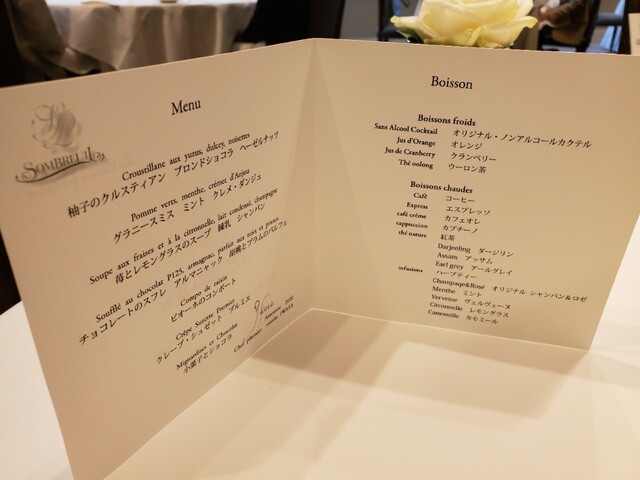 SOMBREUIL
Menu
Croustillane aux yurus, dulcey, noisettes
柚子のクルスティアン ブロンドショコラ ヘーゼルナッツ
Pomme verts, menthe, crémet d'Anjou
グラニースミス ミント クレメ・ダンジュ
Soupe aux fraises et à la citronnelle, lait condensé, champagne
苺とレモングラスのスープ 練乳 シャンパン
Soufflé au chocolat P125, armagnac, parfait aux noix et prunes
チョコレートのスフレ アルマニャック 胡桃とプラムのパルフェ
Compo de raisin
ピオーネのコンポート
Crêpe Suzette Premier
クレープ・シュゼット プルミエ
Mignardises et Chocolat
小菓子とショコラ
Automne 2020
Chef pâtissier
Boisson
Boissons froids
Sans Alcool Cocktail オリジナル・ノンアルコールカクテル
Jus d'Orange オレンジ
Jus de Cranberry クランベリー
Thé oolong ウーロン茶
Boissons chaudes
Café コーヒー
Express エスプレッソ
café crème カフェオレ
cappuccino カプチーノ
thé nature 紅茶
Darjeeling ダージリン
Assam アッサム
Earl grey アールグレイ
infusions ハーブティー
Champaqe&Rosé オリジナル シャンパン&ロゼ
Menthe ミント
Verveine ヴェルヴェーヌ
Citronnelle レモングラス
Camomille カモミール